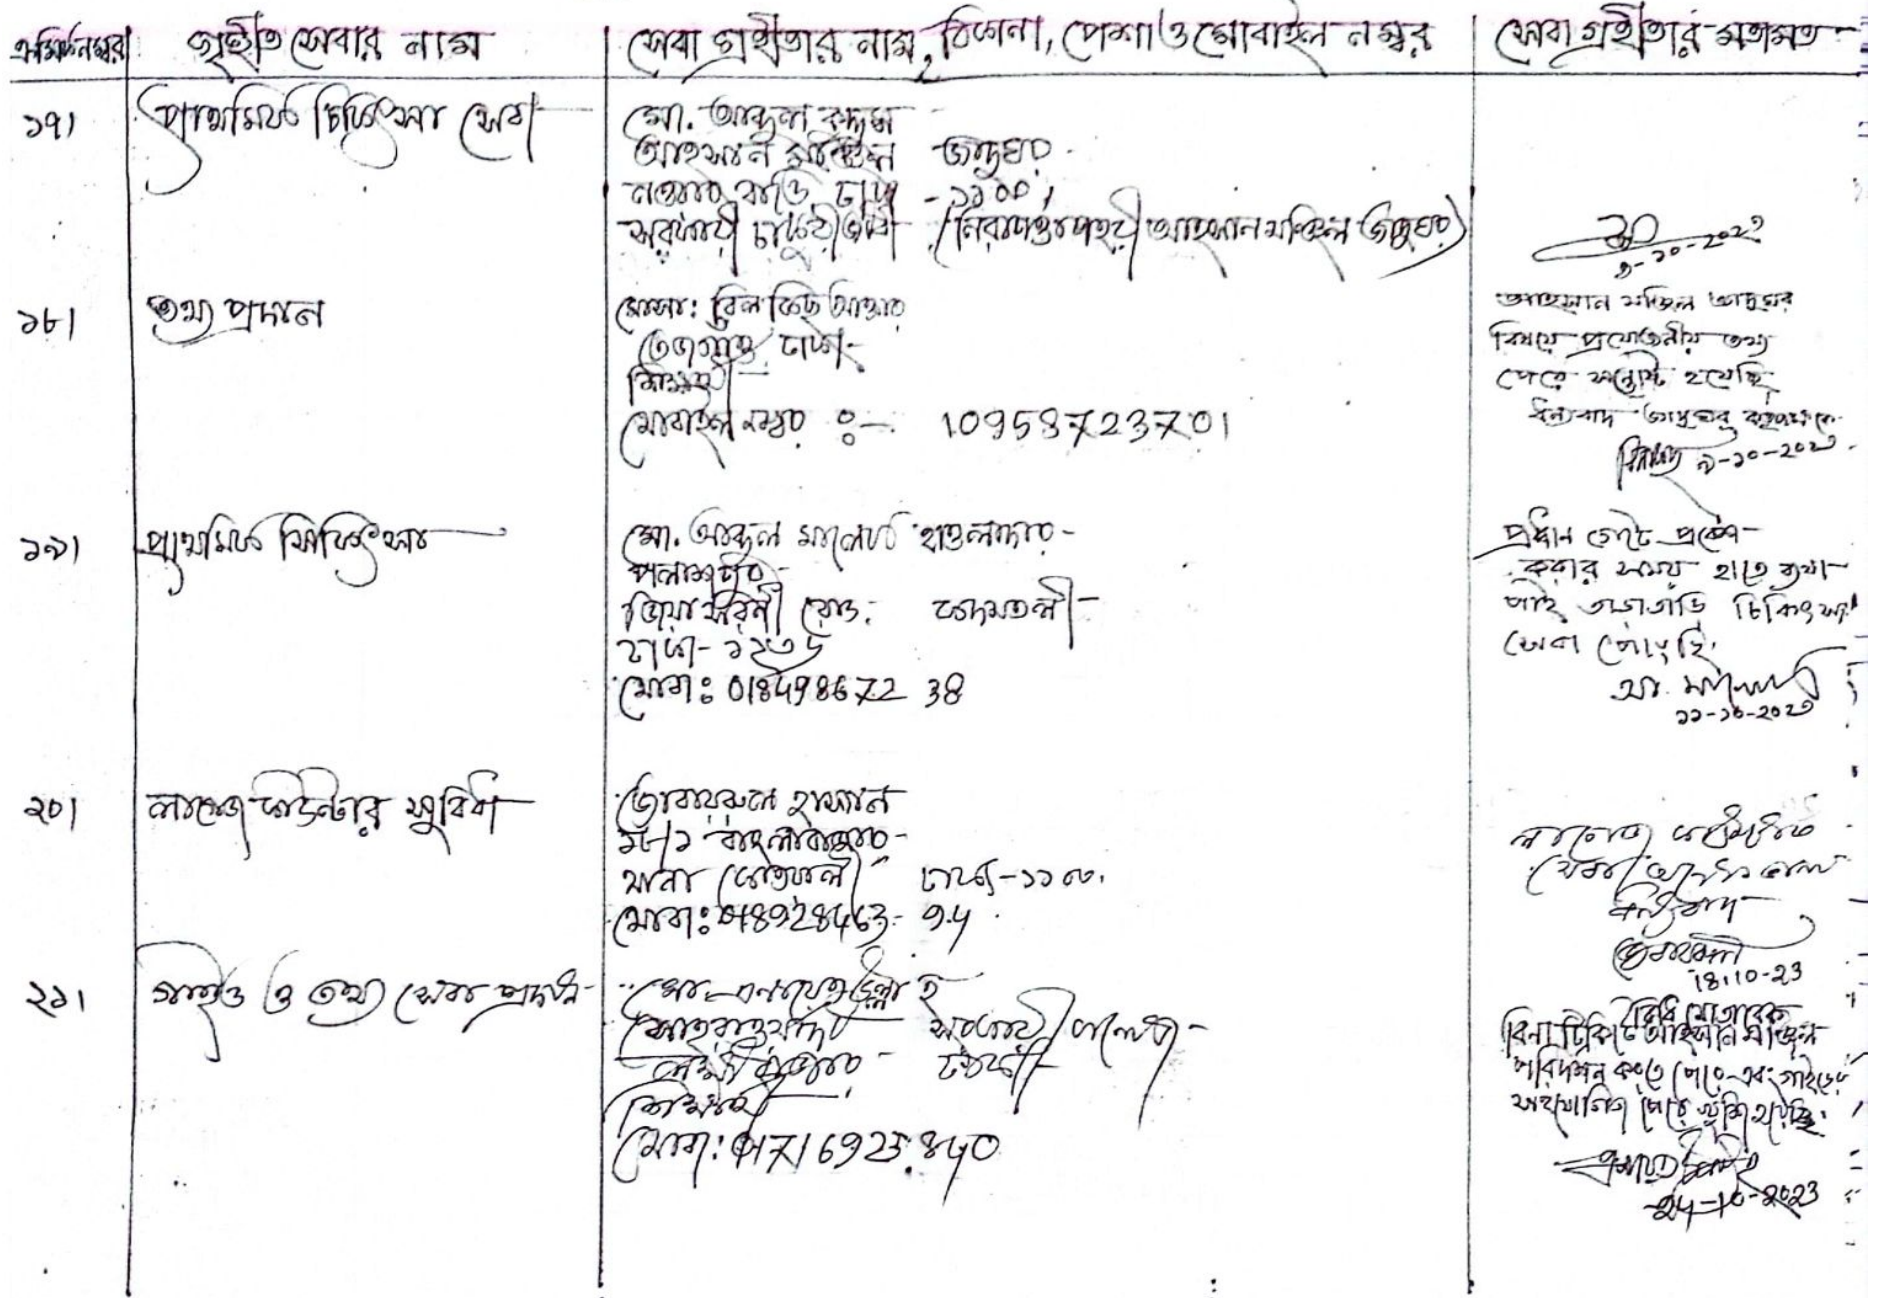 ক্রমিক নম্বর গৃহীত সেবার নাম সেবা গ্রহীতার নাম, ঠিকানা, পেশা ও মোবাইল নম্বর সেবা গ্রহীতার মতামত
১৭। প্রাথমিক চিকিৎসা সেবা মো. আব্দুল কুদ্দুস
আহসান মঞ্জিল জাদুঘর
নওয়াব বাড়ি, ঢাকা - ১১০০,
সরকারী চাকুরীজীবী (নিরাপত্তা প্রহরী আহসান মঞ্জিল জাদুঘর)
৯-১০-২০২৩
১৮। তথ্য প্রদান মোসা: বিলকিছ আক্তার
তেজগাঁও, ঢাকা-
শিক্ষার্থী
মোবাইল নম্বর ঃ-
আহসান মঞ্জিল জাদুঘর
বিষয়ে প্রয়োজনীয় তথ্য
পেয়ে সন্তোষ্ট হয়েছি
ধন্যবাদ জাদুঘর কর্তৃপক্ষকে
৯-১০-২০২৩
১৯। প্রাথমিক চিকিৎসা মো. আব্দুল মালেক হাওলাদার-
পলাশপুর-
জিয়া সরনী রোড, কদমতলী-
ঢাকা- ১২৩৬
মোবা: 01849867238
প্রধান গেটে প্রবেশ
করার সময় হাতে ব্যথা
পাই তাড়াতাড়ি চিকিৎসা
সেবা পেয়েছি।
আ. মালেক
১১-১০-২০২৩
২০। লাগেজ কাউন্টার সুবিধা জোবায়রুল হাসান
১৮/১ বাংলাবাজার-
থানা কোতয়ালী ঢাকা-১১০০.
মোবা:
লাগেজ কাউন্টার
সেবা
ধন্যবাদ
18.10-23
২১। গাইড ও তথ্য সেবা প্রদান মো. এনায়েত উল্লাহ
সোহরাওয়ার্দী সরকারী কলেজ-
লক্ষ্মী বাজার - ঢাকা-
শিক্ষার্থী
মোবা: 01716925840
বিধি মোতাবেক
বিনা টিকিটে আহসান মঞ্জিল
পরিদর্শন করতে পেরে এবং গাইডের
সহযোগিতা পেয়ে খুশি হয়েছি।
24-10-2023